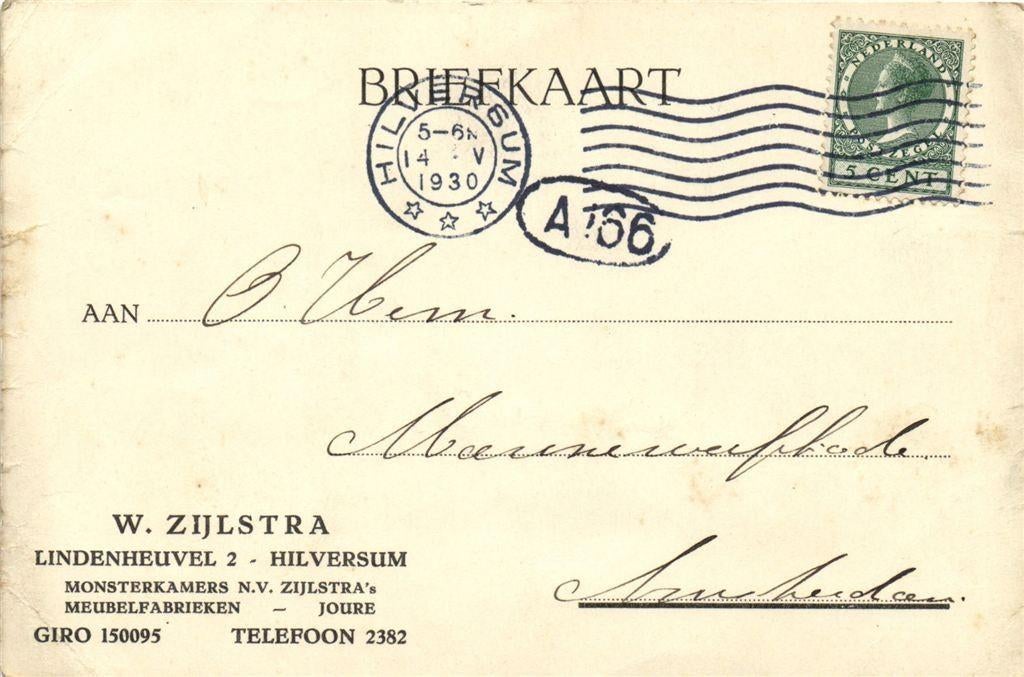 BRIEFKAART
HILVERSUM
5-6N
14 V
1930
A 166
NEDERLAND
POSTZEGEL
5 CENT
AAN
Amsterdam.
W. ZIJLSTRA
LINDENHEUVEL 2 - HILVERSUM
MONSTERKAMERS N.V. ZIJLSTRA's
MEUBELFABRIEKEN — JOURE
GIRO 150095 TELEFOON 2382